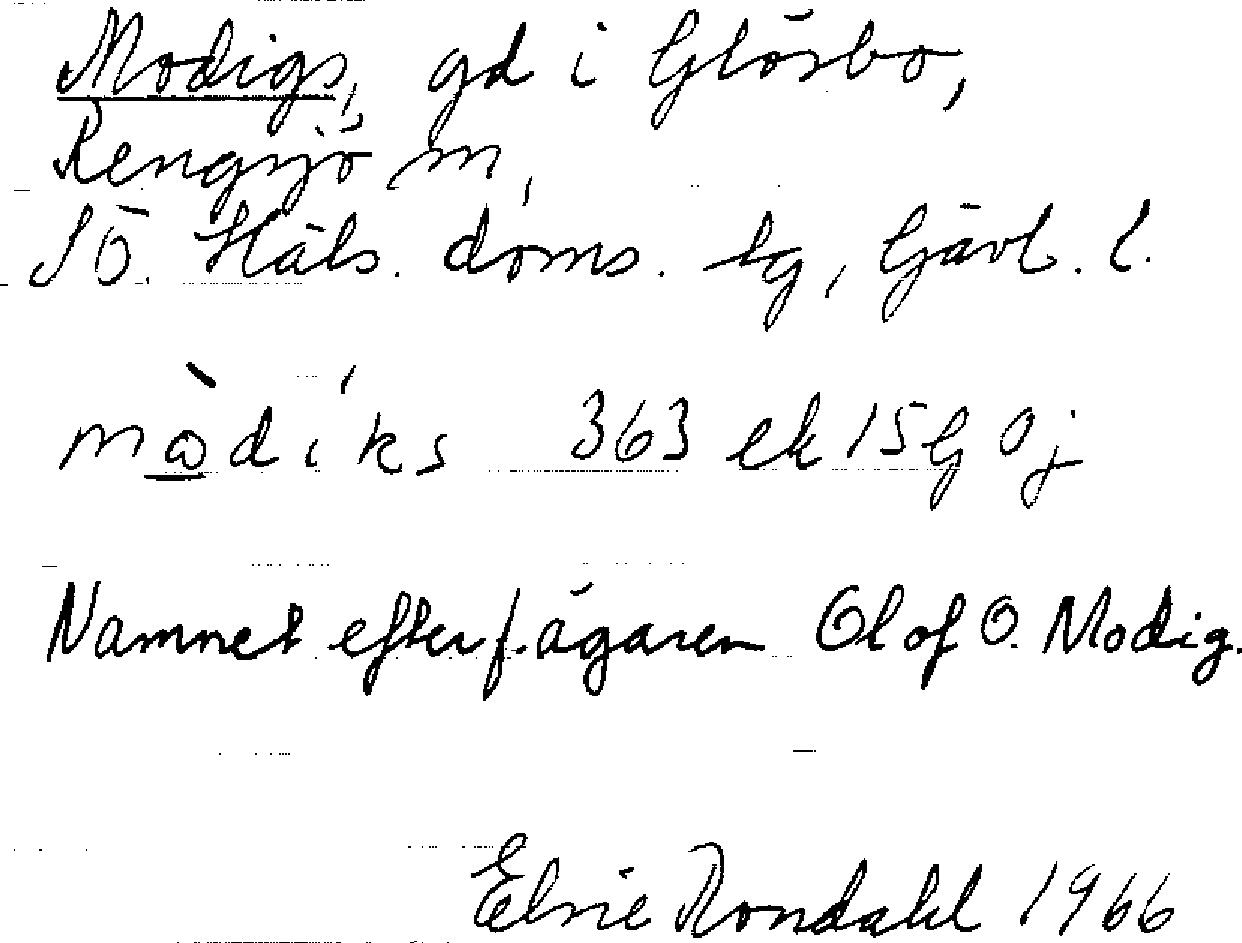 Modigs, gd i Glösbo,
Rengsjö sn,
SÖ. Häls. doms. tg, Gävl. l.
mò̲̲díks 363 ek 15G 0j
Namnet efter f. ägaren Olof O. Modig.
Elvie Rondahl 1966